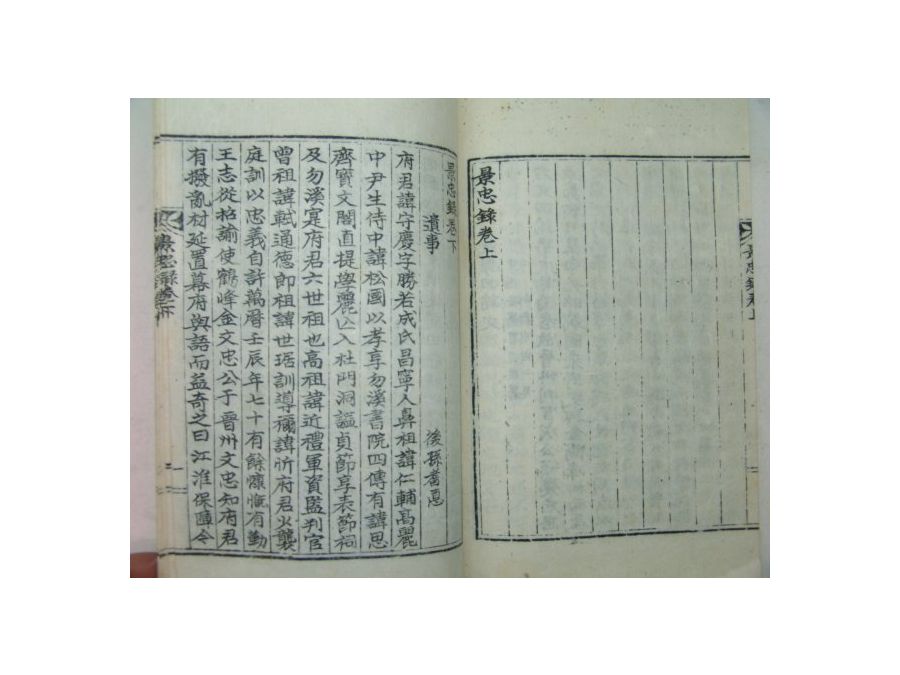 景忠錄卷上
景忠錄卷上
景忠錄卷下
遺事
後孫耆悳
府君諱守慶字勝若成氏昌寧人鼻祖諱仁輔高麗
中尹生侍中諱松國以孝享勿溪書院四傳有諱思
齊寶文閣直提學麗亾入杜門洞謚貞節享表節祠
及勿溪寔府君六世祖也高祖諱近禮軍資監判官
曾祖諱軾通德郎祖諱世琚訓導禰諱忻府君火襲
庭訓以忠義自許萬曆壬辰年七十有餘慷慨有勤
王志從招諭使鶴峰金文忠公于晉州文忠知府君
有撥亂材延置幕府與語而益奇之曰江淮保障令
景忠錄卷下
一